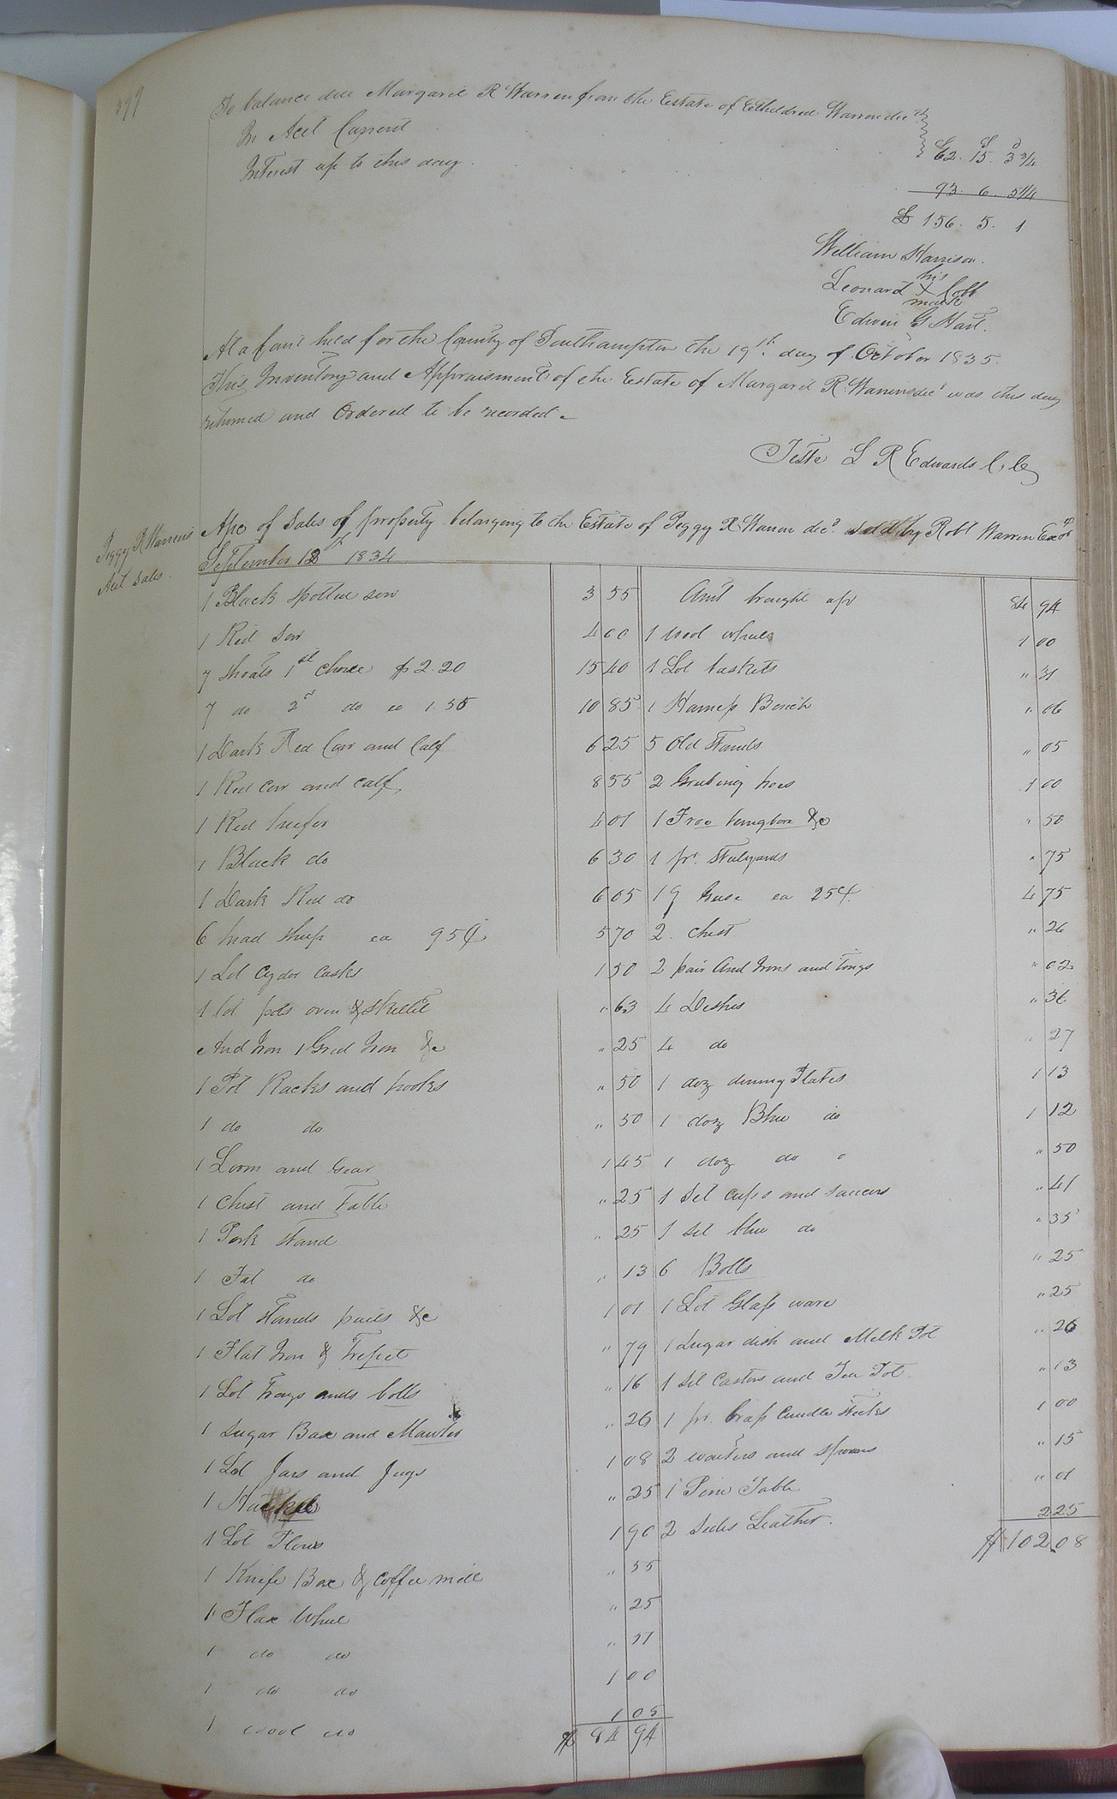 499
To balance due Margaret R Warren from the Estate of Etheldred Warren decd
In Acct Current £ 62. 15. 3 3/4
Interest up to this day 93. 6. 5 1/4
£ 156. 5. 1
William Harrison.
his
Leonard X Cobb
mark
Edwin G Hart.
At a Court held for the County of Southampton the 19th day of October 1835.
This Inventory and Appraisment of the Estate of Margaret R Warren decd was this day
returned and Ordered to be recorded.
Teste L R Edwards C. C.
Peggy R Warren's
Acct Sales.
Apc of Sales of property belonging to the Estate of Peggy R Warren decd sold by Robt Warren Exor
September 18th 1834
1 Black spotted sow 3 55
1 Red Sow 4 00
7 shoats 1st choice $2.20 15 40
7 do 2d do ea 1.55 10 85
1 Dark Red Cow and Calf 6 25
1 Red Cow and calf 8 55
1 Red heifer 4 01
1 Black do 6 30
1 Dark Red do 6 05
6 head sheep ea 95¢ 5 70
1 Lot Cyder Casks 1 50
1 lot pots oven & skillet " 63
And Iron 1 Grid Iron &c " 25
1 Pot Racks and hooks " 50
1 do do " 50
1 Loom and Gear 1 45
1 Chest and Table " 25
1 Pork Stand " 25
1 Fat do " 13
1 Lot Stands pails &c 1 01
1 Flat Iron & Trefset " 79
1 Lot Trays ands bolls " 16
1 Sugar Box and " 26
1 Lot Jars and Jugs 1 08
1 " 25
1 Lot 1 90
1 Knife Box & Coffee mill " 55
1 Flax Wheel " 25
1 do do " 51
1 do do 1 00
1 wool do 1 05
$ 84 94
Amt brought up 84 94
1 wool wheel 1 00
1 Lot baskets " 31
1 Harness Bench " 06
5 Old Stands " 05
2 Grubing hoes 1 00
1 Froe &c " 50
1 pr. Stilyards " 75
19 Geese ea 25¢ 4 75
2 Chest " 26
2 pair And Irons and Tongs " 62
4 Dishes " 36
4 do " 27
1 doz dinning Plates 1 13
1 doz Blue do 1 12
1 doz do " 50
1 Set cups and saucers " 41
1 set blue do " 35
6 Bolls " 25
1 Lot Glass ware " 25
1 Sugar dish and Milk Pot " 26
1 Set Casters and Tea Pot. " 13
1 pr. Brass Candle Sticks 1 00
2 waiters and spoons " 15
1 Pine Table " 01
2 sides Leather. 2 25
$ 102.08